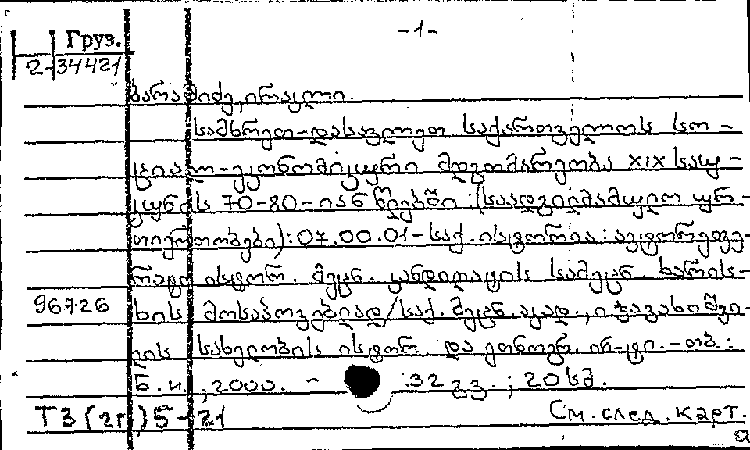 -1-
Груз.
2-34421
ბარამიძე, ირაკლი
სამხრეთ-დასავლეთ საქართველოს სო-
ციალ-ეკონომიკური მდგომარეობა XIX საუ-
კუნის 70-80-იან წლებში (საადგილმამულო ურ-
თიერთობები): 07.00.01-საქ. ისტორია: ავტორეფე-
რატი ისტორ. მეცნ. კანდიდატის სამეცნ. ხარის-
96726 ხის მოსაპოვებლად/საქ. მეცნ. აკად., ი. ჯავახიშვი-
ლის სახელობის ისტორ. და ეთნოგრ. ინ-ტი.-თბ.:
ნ.ი., 2000. - 32 გვ.; 20 სმ.
Т3(2г)5-21 См. след. карт.